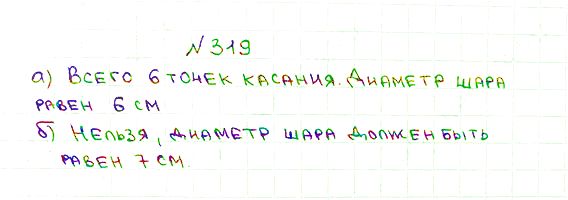 № 319
а) Всего 6 точек касания. Диаметр шара
равен 6 см
б) Нельзя, диаметр шара должен быть
равен 7 см.